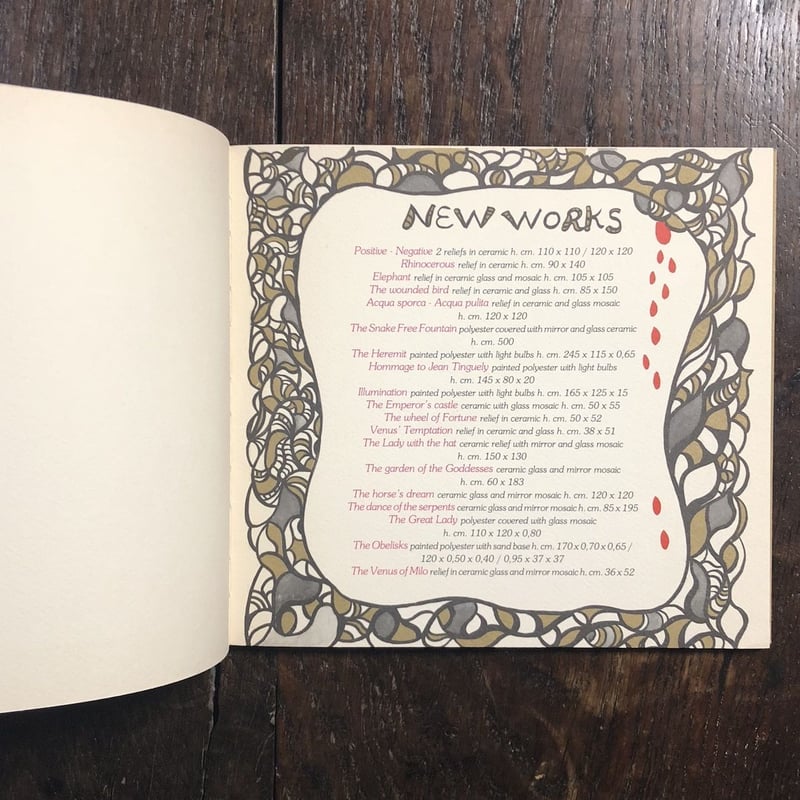 NEW WORKS
Positive - Negative 2 reliefs in ceramic h. cm. 110 x 110 / 120 x 120
Rhinocerous relief in ceramic h. cm. 90 x 140
Elephant relief in ceramic glass and mosaic h. cm. 105 x 105
The wounded bird relief in ceramic and glass h. cm. 85 x 150
Acqua sporca - Acqua pulita relief in ceramic and glass mosaic
h. cm. 120 x 120
The Snake Free Fountain polyester covered with mirror and glass ceramic
h. cm. 500
The Heremit painted polyester with light bulbs h. cm. 245 x 115 x 0,65
Hommage to Jean Tinguely painted polyester with light bulbs
h. cm. 145 x 80 x 20
Illumination painted polyester with light bulbs h. cm. 165 x 125 x 15
The Emperor's castle ceramic with glass mosaic h. cm. 50 x 55
The wheel of Fortune relief in ceramic h. cm. 50 x 52
Venus' Temptation relief in ceramic and glass h. cm. 38 x 51
The Lady with the hat ceramic relief with mirror and glass mosaic
h. cm. 150 x 130
The garden of the Goddesses ceramic glass and mirror mosaic
h. cm. 60 x 183
The horse's dream ceramic glass and mirror mosaic h. cm. 120 x 120
The dance of the serpents ceramic glass and mirror mosaic h. cm. 85 x 195
The Great Lady polyester covered with glass mosaic
h. cm. 110 x 120 x 0,80
The Obelisks painted polyester with sand base h. cm. 170 x 0,70 x 0,65 /
120 x 0,50 x 0,40 / 0,95 x 37 x 37
The Venus of Milo relief in ceramic glass and mirror mosaic h. cm. 36 x 52